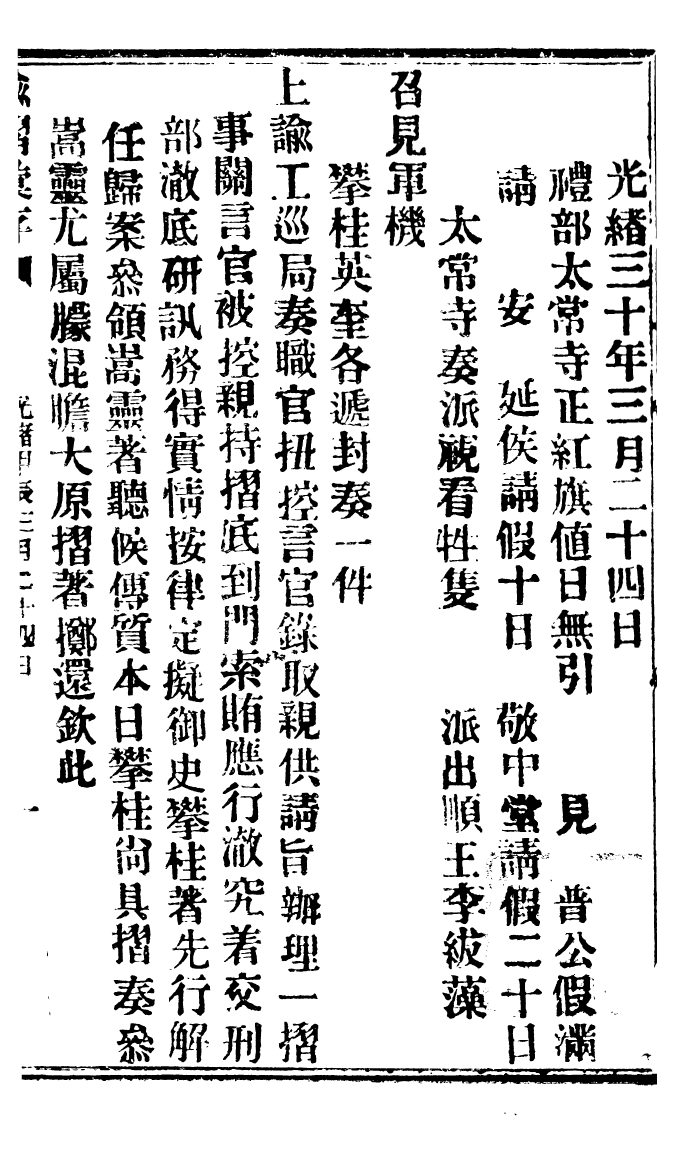 光緒三十年三月二十四日
禮部太常寺正紅旗值日無引　見　普公假滿
請　安　延侯請假十日　敬中堂請假二十日
太常寺奏派視看牲隻　派出順王李紱藻
召見軍機
攀桂英奎各遞封奏一件
上諭工巡局奏職官扭控言官錄取親供請旨辦理一摺
事關言官被控親持摺底到門索賄應行澈究着交刑
部澈底研訊務得實情按律定擬御史攀桂著先行解
任歸案叅領嵩靈著聽候傳質本日攀桂尙具摺奏叅
嵩靈尤屬朦混膽大原摺著擲還欽此
諭摺彙存　光緒甲辰三月二十四日　一